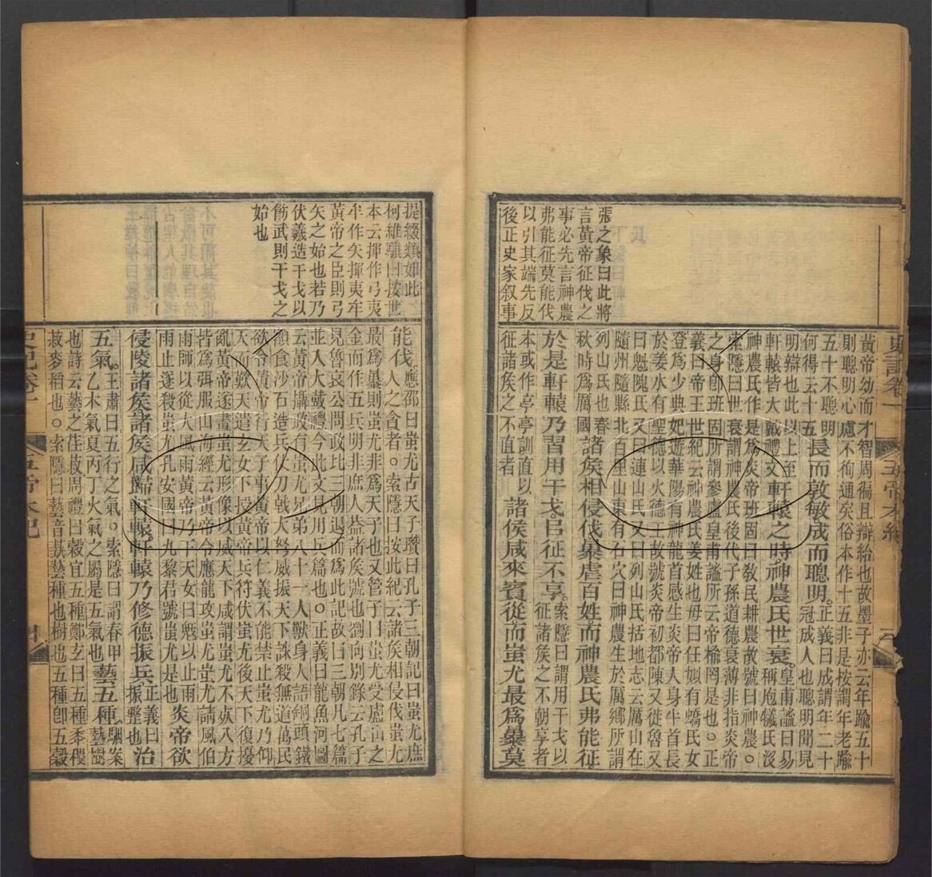 張之象曰此將
言黃帝征伐之
事必先言神農
弗能征莫能伐
以引其端先反
後正史家敘事
史記卷一
五帝本紀
三
黃帝幼而才智周徧且辯給也故墨子亦云年踰五十
則聰明心慮不徇通矣俗本作十五非是按謂年老踰
五十不聰明
何得云十五
長而敦敏成而聰明
正義曰成謂年二十
冠成人也聰明聞見
明辯也此以上至
軒轅皆大戴禮文
軒轅之時神農氏世衰
皇甫謐曰易
稱庖犧氏沒
神農氏作是爲炎帝班固曰教民耕農故號曰神農。
索隱曰世衰謂神農氏後代子孫道德衰薄非指炎帝
之身卽班固所謂參盧皇甫謐所云帝榆罔是也。正
義曰帝王世紀云神農氏姜姓也母曰任姒有蟜氏女
登爲少典妃遊華陽有神龍首感生炎帝人身牛首長
於姜水有聖德以火德王故號炎帝初都陳又徙魯又
曰魁隗氏又曰連山氏又曰列山氏括地志云厲山在
隨州隨縣北百里山東有石穴曰神農生於厲鄉所謂
列山氏也春
秋時爲厲國
諸矦相侵伐暴虐百姓而神農氏弗能征
於是軒轅乃習用干戈㠯征不享
索隱曰謂用干戈以
征諸矦之不朝享者
本或作亭亭訓直以
征諸矦之不直者
諸侯咸來賓從而蚩尤最爲暴莫
提綴類如此
柯維騏曰按世
本云揮作弓夷
牟作矢揮夷牟
黃帝之臣則弓
矢之始也若乃
伏羲造干戈以
飭武則干戈之
始也
能伐
應劭曰蚩尤古天子瓚曰孔子三朝記曰蚩尤庶
人之貪者。索隱曰按此紀云諸矦相侵伐蚩尤
最爲暴則蚩尤非爲天子也又管子曰蚩尤受盧山之
金而作五兵明非庶人葢諸矦號也劉向別錄云孔子
見魯哀公問政比三朝退而爲此記故曰三朝凡七篇
並入大戴禮今此文見用兵篇也。正義曰龍魚河圖
云黃帝攝政有蚩尤兄弟八十一人並獸身人語銅頭鐵
額食沙石造兵仗刀戟大弩威振天下誅殺無道萬民
欲令黃帝行天子事黃帝以仁義不能禁止蚩尤乃仰
天而歎天遣玄女下授黃帝兵符伏蚩尤後天下復擾
亂黃帝遂畫蚩尤形像以威天下咸謂蚩尤不死八方
皆爲弭服山海經云黃帝令應龍攻蚩尤蚩尤請風伯
雨師以從大風雨黃帝乃下天女曰魃以止雨
雨止遂殺蚩尤孔安國曰九黎君號蚩尤是也
炎帝欲
侵陵諸矦諸矦咸歸軒轅軒轅乃修德振兵
正義曰
振整也
治
五氣
王肅曰五行之氣。索隱曰謂春甲
乙木氣夏丙丁火氣之屬是五氣也
蓺五種
駰案
蓺樹
也詩云蓺之荏菽周禮曰穀宜五種鄭玄曰五種黍稷
菽麥稻也。索隱曰蓺音藝蓺種也樹也五種卽五穀
史記卷一
五帝本紀